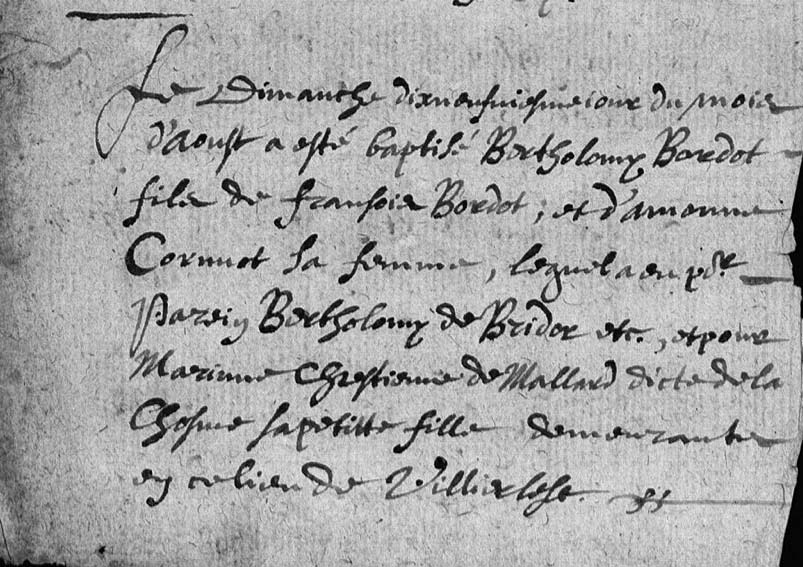 Le Dimanche dixneufviesme jour du mois
d'aoust a esté baptisé Bertholomy Bordot
fils de fransois Bordot, et d'amonne
Cornuot sa femme, lequel a eu po.r
Parein Bertholomy de Bridor etc., et pour
Marinne Chrestienne de Mallard dicte de la
Chosme sa petitte fille demeurante
en ce lieu de Villierlese